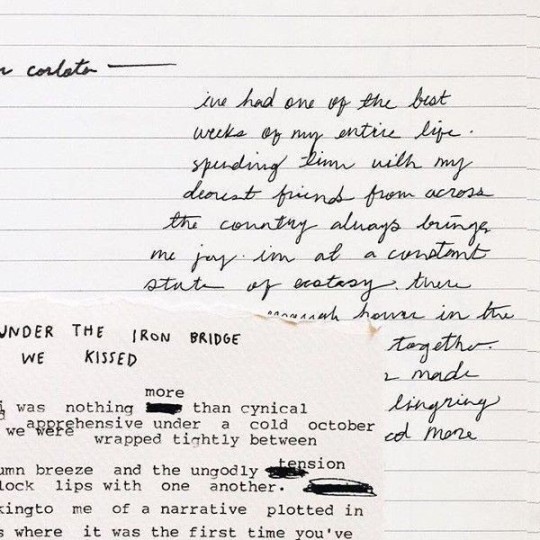 ive had one of the best
weeks of my entire life.
spending time with my
dearest friend from across
the country always brings
me joy. im at a constant
state of ecstasy. there
hours in the
together.
made
lingring
more
UNDER THE IRON BRIDGE
WE KISSED
more
i was nothing than cynical
apprehensive under a cold october
we were wrapped tightly between
umn breeze and the ungodly tension
lock lips with one another.
kingto me of a narrative plotted in
s where it was the first time you've